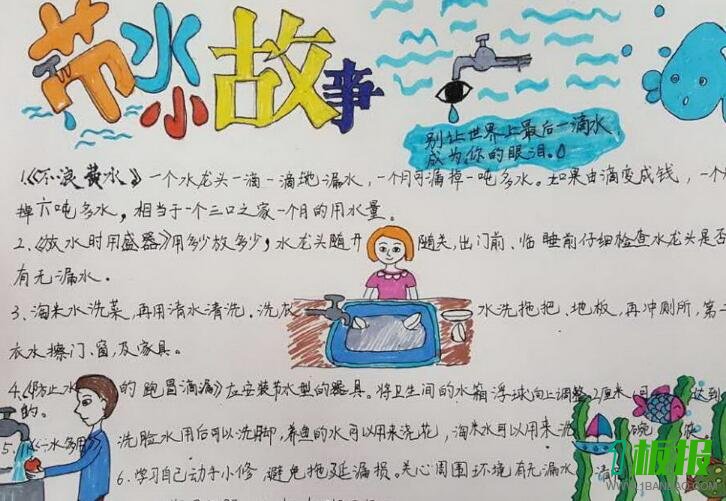 节水小故事
别让世界上最后一滴水,
成为你的眼泪。
1.《不浪费水》一个水龙头一滴一滴地漏水,一个月可漏掉一吨多水。如果由滴变成线,一个
掉六吨多水,相当于一个三口之家一个月的用水量。
2.《放水时用盛器》用多少放多少,水龙头随开随关,出门前、临睡前仔细检查水龙头是否
有无漏水。
3、淘米水洗菜,再用清水清洗。洗衣水洗拖把、地板,再冲厕所,第二
衣水擦门、窗及家具。
4.《防止水的跑冒滴漏》应安装节水型的器具。将卫生间的水箱浮球向上调整2厘米,可达到
的。
5.《一水多用》洗脸水用后可以洗脚,养鱼的水可以用来浇花,淘米水可以用来洗碗
6.学习自己动手小修,避免拖延漏损。关心周围环境有无漏水
板报
WWW.1BANBAO.COM